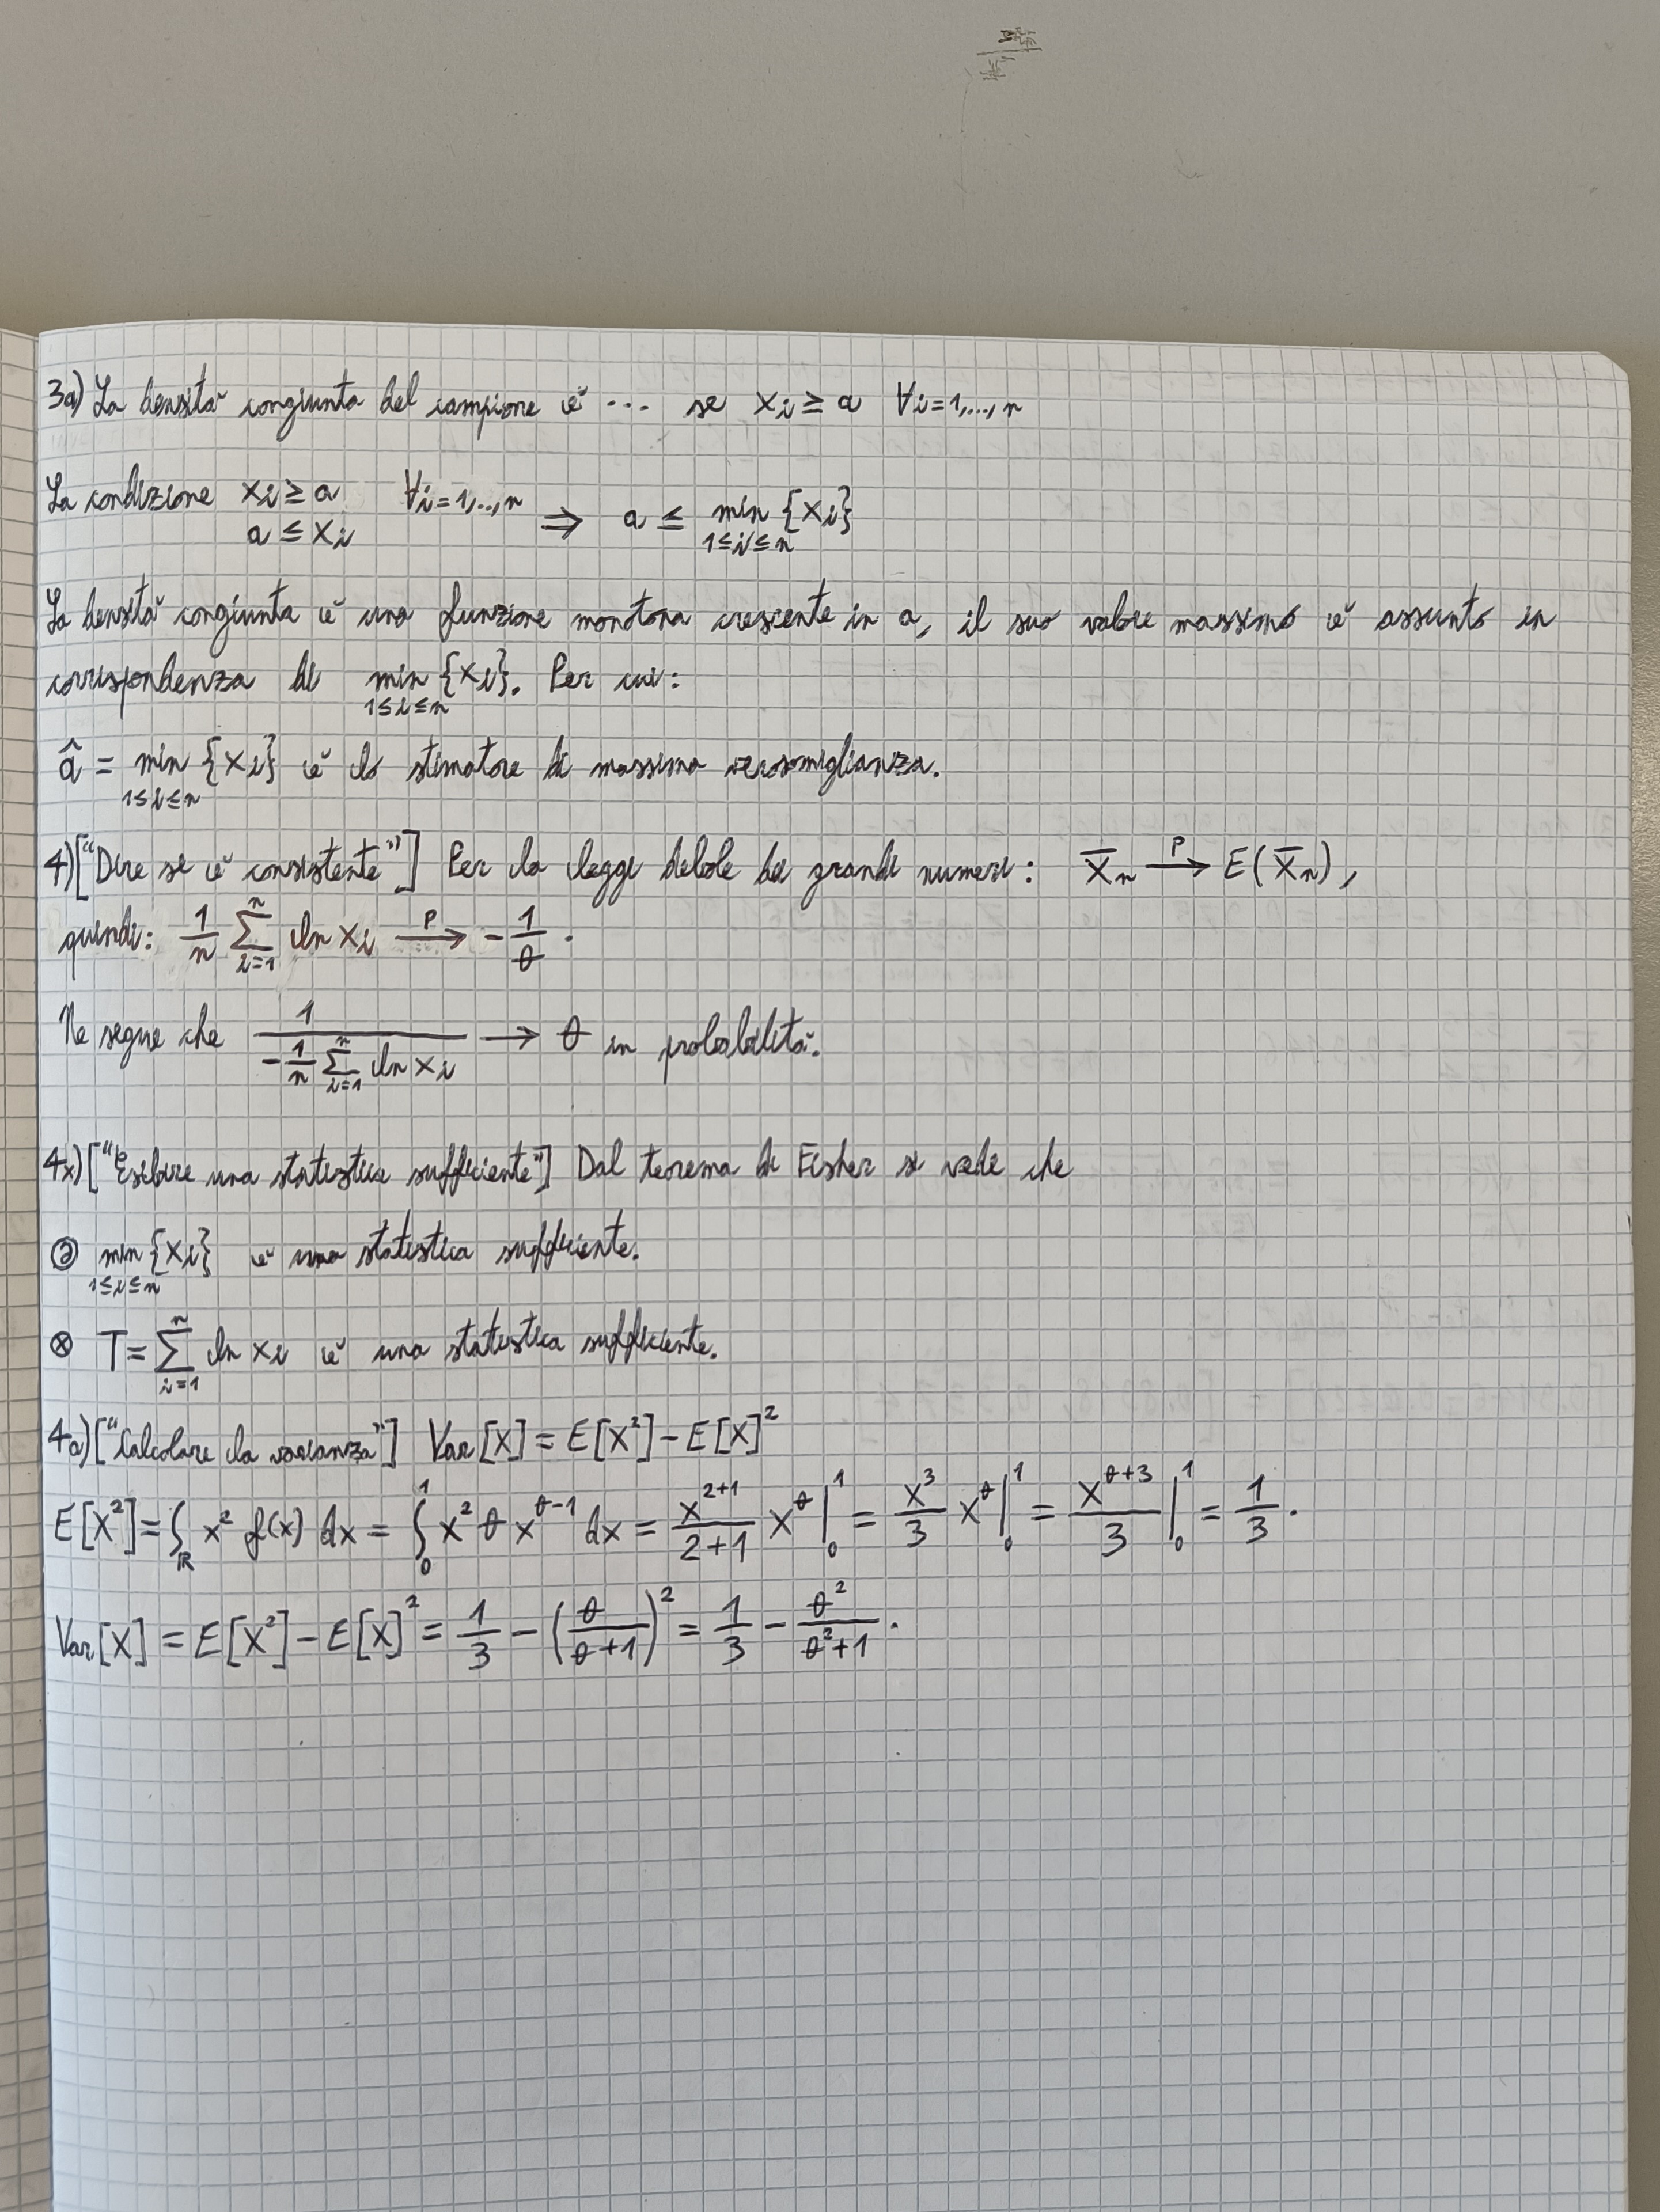 3a) La densità congiunta del campione è ... se xi ≥ a ∀i=1,...,n
La condizione xi ≥ a ∀i=1,..,n
a ≤ xi ⇒ a ≤ min {xi}
1≤i≤n
La densità congiunta è una funzione monotona crescente in a, il suo valore massimo è assunto in
corrispondenza di min {xi}. Per cui:
1≤i≤n
â = min {xi} è lo stimatore di massima verosomiglianza.
1≤i≤n
4)["Dire se è consistente"] Per la legge debole dei grandi numeri: X̄n →ᴾ E(X̄n),
quindi: 1/n Σ_{i=1}^{n} ln xi →ᴾ -1/θ.
Ne segue che 1/(-1/n Σ_{i=1}^{n} ln xi) → θ in probabilità.
4x)["Esibire una statistica sufficiente"] Dal teorema di Fisher si vede che
ⓐ min {xi} è una statistica sufficiente.
1≤i≤n
⊗ T = Σ_{i=1}^{n} ln xi è una statistica sufficiente.
4a)["Calcolare la varianza"] Var[X] = E[X²] - E[X]²
E[X²] = ∫_ℝ x² f(x) dx = ∫_0^1 x² θ x^{θ-1} dx = x^{2+1}/(2+1) x^θ |_0^1 = x³/3 x^θ |_0^1 = x^{θ+3}/3 |_0^1 = 1/3.
Var[X] = E[X²] - E[X]² = 1/3 - (θ/(θ+1))² = 1/3 - θ²/(θ²+1).